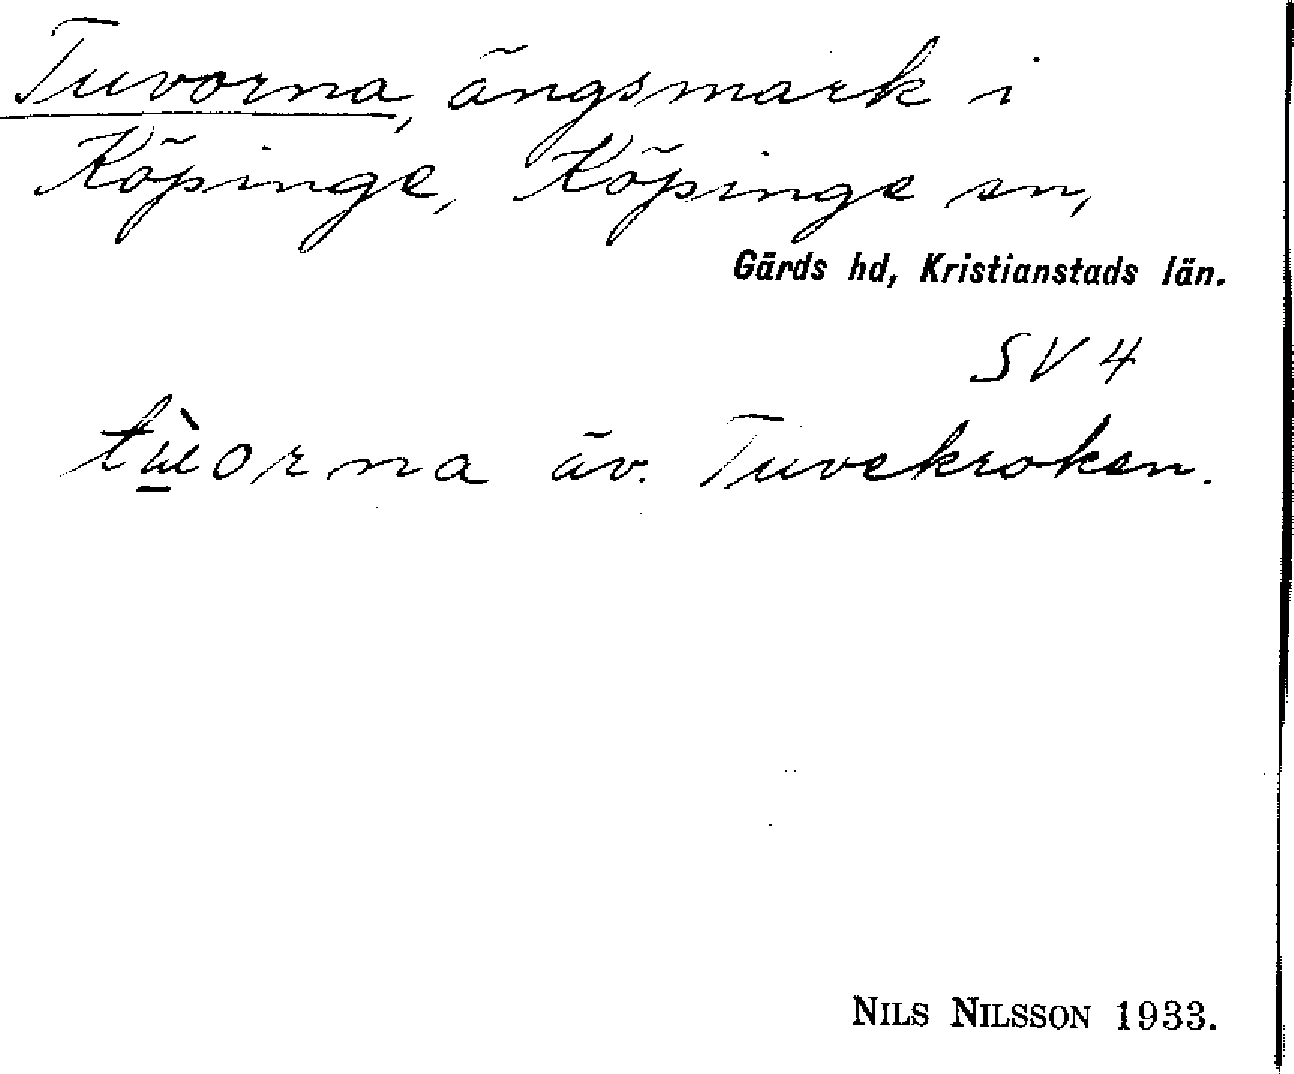 Tuvorna, ängsmark i
Köpinge, Köpinge sn,
Gärds hd, Kristianstads län.
SV 4
äv. Tuvekroken.
NILS NILSSON 1933.